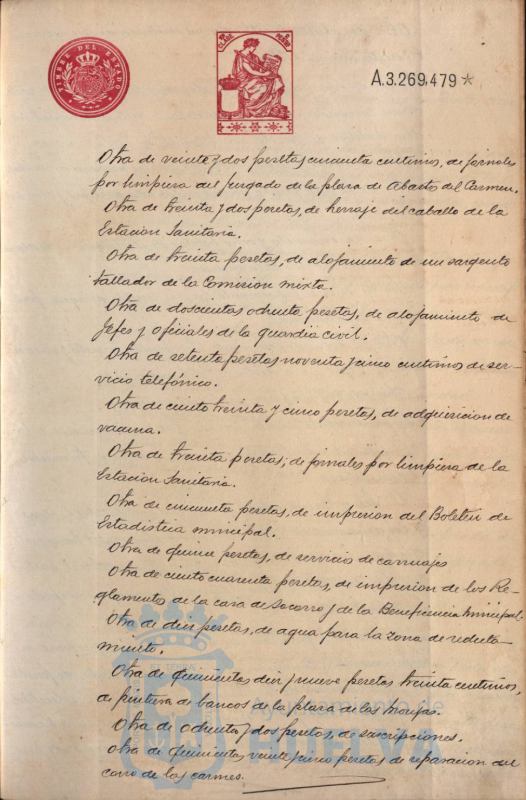 TIMBRE DEL ESTADO
A.3.269.479*
Otra de veinte y dos pesetas cincuenta centimos, de jornales
por limpieza del juzgado de la plaza de Abastos del Carmen.
Otra de treinta y dos pesetas, de herraje del caballo de la
Estacion Sanitaria.
Otra de treinta pesetas, de alojamiento de un sargento
tallador de la Comision mixta.
Otra de doscientas ochenta pesetas, de alojamiento de
Jefes y oficiales de la guardia civil.
Otra de setenta pesetas noventa y cinco centimos de ser-
vicio telefónico.
Otra de ciento treinta y cinco pesetas, de adquisicion de
vacuna.
Otra de treinta pesetas, de jornales por limpieza de la
Estacion Sanitaria.
Otra de cincuenta pesetas, de impresion del Boletin de
Estadistica municipal.
Otra de quince pesetas, de servicios de carruajes
Otra de ciento cuarenta pesetas, de impresion de los Re-
glamentos de la casa de Socorro y de la Beneficencia Municipal.
Otra de diez pesetas, de agua para la zona de recluta-
miento.
Otra de quinientas diez y nueve pesetas treinta centimos,
de pintura de bancos de la plaza de las Monjas.
Otra de ochenta y dos pesetas, de suscripciones.
Otra de quinientas veinte y cinco pesetas de reparacion del
carro de las carnes.
Ayuntamiento de
HUELVA